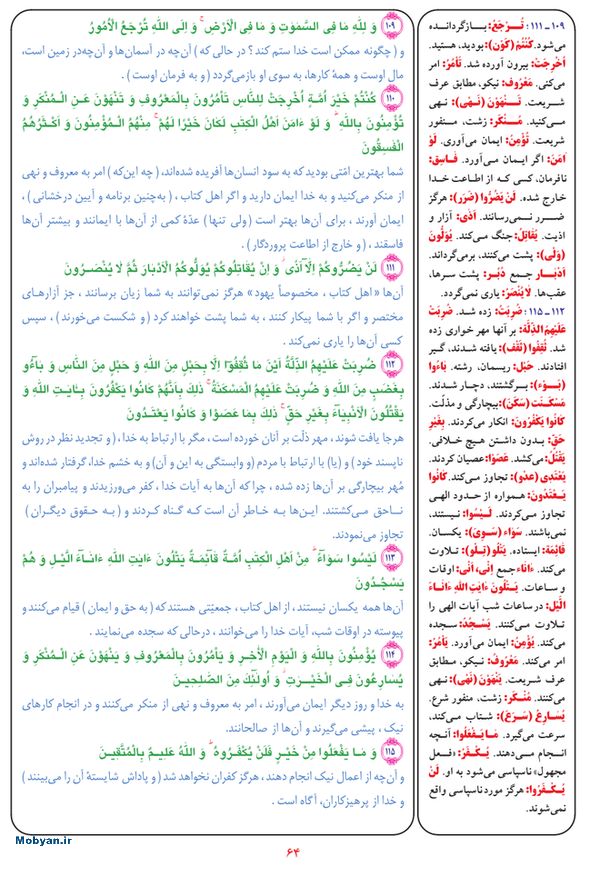 ۱۰۹ وَ لِلّٰهِ مَا فِی السَّمٰوٰتِ وَ مَا فِی الْاَرْضِ ۚ وَ اِلَی اللّٰهِ تُرْجَعُ الْاُمُورُ
و ( چگونه ممکن است خدا ستم کند ؟ در حالی که ) آن‌چه در آسمان‌ها و آن‌چه در زمین است،
مال اوست و همهٔ کارها، به سوی او بازمی‌گردد ( و به فرمان اوست ) .
۱۱۰ كُنْتُمْ خَيْرَ اُمَّةٍ اُخْرِجَتْ لِلنَّاسِ تَأْمُرُونَ بِالْمَعْرُوفِ وَ تَنْهَوْنَ عَنِ الْمُنْكَرِ وَ
تُؤْمِنُونَ بِاللّٰهِ ۗ وَ لَوْ ءَامَنَ اَهْلُ الْكِتٰبِ لَكَانَ خَيْرًا لَهُمْ ۚ مِنْهُمُ الْمُؤْمِنُونَ وَ اَكْثَرُهُمُ
الْفٰسِقُونَ
شما بهترین امّتی بودید که به سود انسان‌ها آفریده شده‌اند، ( چه این‌که ) امر به معروف و نهی
از منکر می‌کنید و به خدا ایمان دارید و اگر اهل کتاب ، ( به‌چنین برنامه و آیین درخشانی ) ،
ایمان آورند ، برای آن‌ها بهتر است ( ولی تنها ) عدّهٔ کمی از آن‌ها با ایمانند و بیشتر آن‌ها
فاسقند ، ( و خارج از اطاعت پروردگار ) .
۱۱۱ لَنْ يَضُرُّوكُمْ اِلَّآ اَذًى ۖ وَ اِنْ يُقَاتِلُوكُمْ يُوَلُّوكُمُ الْاَدْبَارَ ثُمَّ لَا يُنْصَرُونَ
آن‌ها « اهل کتاب ، مخصوصاً یهود» هرگز نمی‌توانند به شما زیان برسانند ، جز آزارهای
مختصر و اگر با شما پیکار کنند ، به شما پشت خواهند کرد ( و شکست می‌خورند ) ، سپس
کسی آن‌ها را یاری نمی‌کند .
۱۱۲ ضُرِبَتْ عَلَيْهِمُ الذِّلَّةُ اَيْنَ مَا ثُقِفُوٓا اِلَّا بِحَبْلٍ مِنَ اللّٰهِ وَ حَبْلٍ مِنَ النَّاسِ وَ بَآءُو
بِغَضَبٍ مِنَ اللّٰهِ وَ ضُرِبَتْ عَلَيْهِمُ الْمَسْكَنَةُ ۚ ذٰلِكَ بِاَنَّهُمْ كَانُوا يَكْفُرُونَ بِـَٔايٰتِ اللّٰهِ وَ
يَقْتُلُونَ الْاَنْبِيَآءَ بِغَيْرِ حَقٍّ ۚ ذٰلِكَ بِمَا عَصَوْا وَ كَانُوا يَعْتَدُونَ
هرجا یافت شوند ، مهر ذلّت بر آنان خورده است ، مگر با ارتباط به خدا ، ( و تجدید نظر در روش
ناپسند خود ) و (یا) با ارتباط با مردم (و وابستگی به این و آن) و به خشم خدا، گرفتار شده‌اند و
مُهر بیچارگی بر آن‌ها زده شده ، چرا که آن‌ها به آیات خدا ، کفر می‌ورزیدند و پیامبران را به
ناحق می‌کشتند. این‌ها به خاطر آن است که گناه کردند و ( به حقوق دیگران )
تجاوز می‌نمودند.
۱۱۳ لَيْسُوا سَوَآءً ۗ مِنْ اَهْلِ الْكِتٰبِ اُمَّةٌ قَآئِمَةٌ يَتْلُونَ ءَايٰتِ اللّٰهِ ءَانَآءَ الَّيْلِ وَ هُمْ
يَسْجُدُونَ
آن‌ها همه یکسان نیستند ، از اهل کتاب ، جمعیّتی هستند که ( به حق و ایمان ) قیام می‌کنند و
پیوسته در اوقات شب، آیات خدا را می‌خوانند ، درحالی که سجده می‌نمایند .
۱۱۴ يُؤْمِنُونَ بِاللّٰهِ وَ الْيَوْمِ الْاٰخِرِ وَ يَأْمُرُونَ بِالْمَعْرُوفِ وَ يَنْهَوْنَ عَنِ الْمُنْكَرِ وَ
يُسَارِعُونَ فِی الْخَيْرٰتِ ۖ وَ اُولٰٓئِكَ مِنَ الصّٰلِحِينَ
به خدا و روز دیگر ایمان می‌آورند ، امر به معروف و نهی از منکر می‌کنند و در انجام کارهای
نیک ، پیشی می‌گیرند و آن‌ها از صالحانند.
۱۱۵ وَ مَا يَفْعَلُوا مِنْ خَيْرٍ فَلَنْ يُكْفَرُوهُ ۗ وَ اللّٰهُ عَلِيمٌ بِالْمُتَّقِينَ
و آن‌چه از اعمال نیک انجام دهند ، هرگز کفران نخواهد شد ( و پاداش شایستهٔ آن را می‌بینند )
و خدا از پرهیزکاران، آگاه است .
۱۰۹ ـ ۱۱۱ : تُرْجَعُ: بازگردانده
می‌شود. كُنْتُمْ (كَوْن): بودید، هستید.
اُخْرِجَتْ: بیرون آورده شد. تَأْمُرُ: امر
می‌کنی. مَعْرُوف: نیکو، مطابق عرف
شریعت. تَنْهَوْنَ (نَهْی): نهی
می‌کنید. مُنْكَر: زشت، منفور
شریعت. تُؤْمِنُ: ایمان می‌آوری. لَوْ
ءَامَنَ: اگر ایمان می‌آورد. فاسِق:
نافرمان، کسی که از اطاعت خدا
خارج شده. لَنْ يَضُرُّوا (ضَرّ): هرگز
ضرر نمی‌رسانند. اَذًى: آزار و
اذیت. يُقَاتِلُ: جنگ می‌کند. يُوَلُّونَ
(وَلْی): پشت می‌کنند، برمی‌گرداند.
اَدْبَار جمع دُبُر: پشت سرها،
عقب‌ها. لَا يُنْصَرُ: یاری نمی‌گردد.
۱۱۲ ـ ۱۱۵ : ضُرِبَتْ: زده شد. ضُرِبَتْ
عَلَيْهِمُ الذِّلَّةُ: بر آنها مهر خواری زده
شد. ثُقِفُوا (ثَقْف): یافته شدند، گیر
افتادند. حَبْل: ریسمان، رشته. بَاءُوا
(بَوْء): برگشتند، دچار شدند.
مَسْكَنَت (سَكَن): بیچارگی و مذلّت.
كَانُوا يَكْفُرُونَ: انکار می‌کردند. بِغَيْرِ
حَقٍّ: بدون داشتن هیچ خلافی.
يَقْتُلُ: می‌کشد. عَصَوْا: عصیان کردند.
يَعْتَدِی (عدو): تجاوز می‌کند. كَانُوا
يَعْتَدُونَ: همواره از حدود الهی
تجاوز می‌کردند. لَيْسُوا: نیستند،
نمی‌باشند. سَوَاء (سَوِیَ): یکسان.
قَائِمَة: ایستاده. يَتْلُو (تِلو): تلاوت
می‌کند. ءَانَاء جمع اِنْی، اَنْی: اوقات
و ساعات. يَتْلُونَ ءَايَتِ اللّٰهِ ءَانَاءَ
الَّيْلِ: در ساعات شب آیات الهی را
تلاوت می‌کنند. يَسْجُدُ: سجده
می‌کند. يُؤْمِنُ: ایمان می‌آورد. يَأْمُرُ:
امر می‌کند. مَعْرُوف: نیکو، مطابق
عرف شریعت. يَنْهَوْنَ (نَهْی): نهی
می‌کنند. مُنْكَر: زشت، منفور شرع.
يُسَارِعُ (سَرَعَ): شتاب می‌کند،
سرعت می‌گیرد. مَا يَفْعَلُوا: آنچه
انجام می‌دهند. يُكْفَرُ: «فعل
مجهول» ناسپاسی می‌شود به او. لَنْ
يُكْفَرُوا: هرگز مورد ناسپاسی واقع
نمی‌شوند.
Mobyan.ir
۶۴